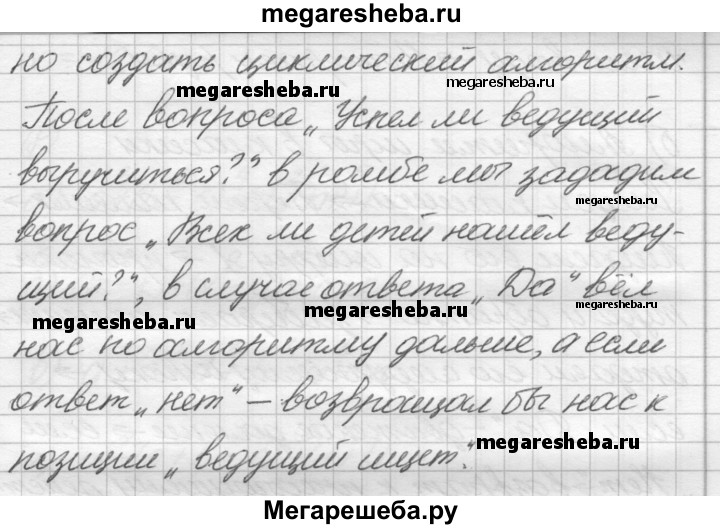 megaresheba.ru
но создать циклический алгоритм.
megaresheba.ru
megaresheba.ru
После вопроса „Успел ли ведущий
выручиться?" в ромбе мы зададим
megaresheba.ru
вопрос „Всех ли детей нашёл веду-
щий?", в случае ответа „Да" вёл
megaresheba.ru
megaresheba.ru
megaresheba.ru
нас по алгоритму дальше, а если
ответ „нет" – возвращал бы нас к
megaresheba.ru
позиции „ведущий ищет."
Мегарешеба.ру